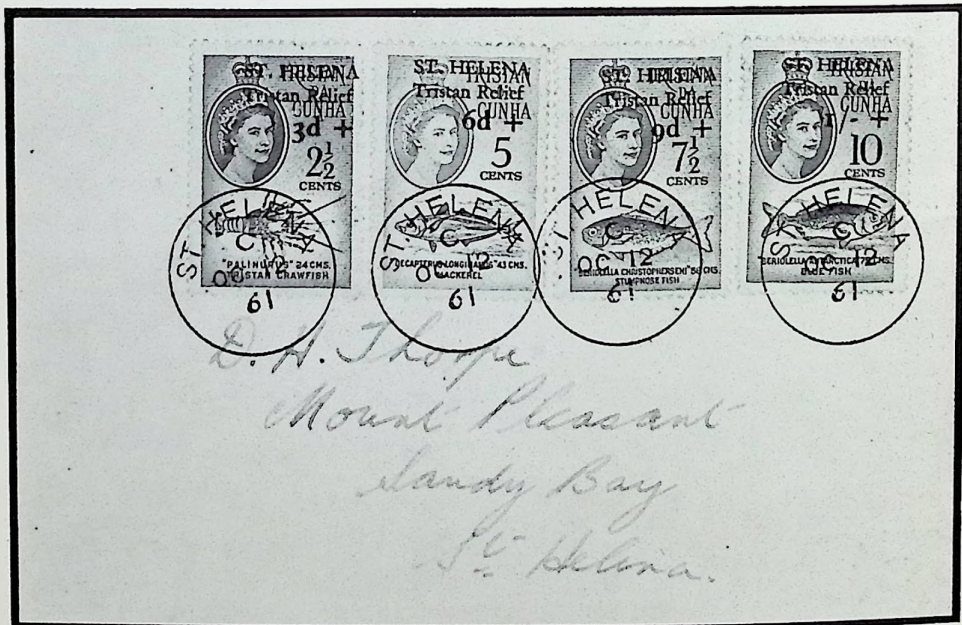 ST. HELENA
TRISTAN
DA
Tristan Relief
CUNHA
3d +
2½
CENTS
"PALINURUS" 24 CMS.
TRISTAN CRAWFISH
ST. HELENA
TRISTAN
DA
Tristan Relief
CUNHA
6d +
5
CENTS
"DECAPTERUS LONGIMANUS" 43 CMS.
MACKEREL
ST. HELENA
TRISTAN
DA
Tristan Relief
CUNHA
9d +
7½
CENTS
"SERIOLELLA CHRISTOPHERSENI" 56 CMS.
STUMPNOSE FISH
ST. HELENA
TRISTAN
DA
Tristan Relief
CUNHA
1/- +
10
CENTS
"SERIOLELLA ANTARCTICA" 75 CMS.
BLUE FISH
ST. HELENA
C
OC 12
61
ST. HELENA
C
OC 12
61
ST. HELENA
C
OC 12
61
ST. HELENA
C
OC 12
61
D. H. Thorpe
Mount Pleasant
Sandy Bay
St. Helena.